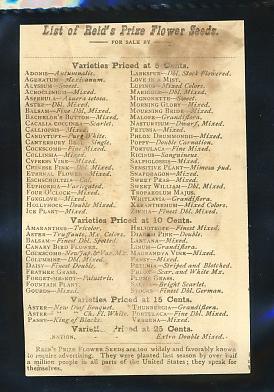 List of Reid's Prize Flower Seeds.
FOR SALE BY
Varieties Priced at 5 Cents.
ADONIS—Autumnalis.
AGERATUM—Mexicanum.
ALYSSUM—Sweet.
ACROLINIUM—Mixed.
ASPERULA—Azurea setosa.
ASTER—Dbl. Mixed.
BALSAM—Fine Dbl. Mixed.
BACHELOR'S BUTTON—Mixed.
CACALIA COCCINEA—Scarlet.
CALLIOPSIS—Mixed.
CANDYTUFT—Pure White.
CANTERBURY BELL—Single.
COCKSCOMB—Fine Mixed.
COLLINSIA—Mixed.
CYPRESS VINE—Mixed.
CHINESE PINK—Dbl. Mixed.
ETERNAL FLOWER—Mixed.
ESCHSCHOLTZIA—Cal.
EUPHORBIA—Variegated.
FOUR O'CLOCK—Mixed.
FOXGLOVE—Mixed.
HOLLYHOCK—Double Mixed.
ICE PLANT—Mixed.
LARKSPUR—Dbl. Stock Flowered.
LOVE IN A MIST.
LUPINS—Mixed Colors.
MARIGOLD—Dbl. Mixed.
MIGNONETTE—Sweet.
MORNING GLORY—Mixed.
MOURNING BRIDE—Mixed.
MALOPE—Grandiflora.
NASTURTIUM—Dwarf, Mixed.
PETUNIA—Mixed.
PHLOX DRUMMONDII—Mixed.
POPPY—Double Carnation.
PORTULACA—Fine Mixed.
RICINUS—Sanguineus.
SALPIGLOSSIS—Mixed.
SENSITIVE PLANT—Mimosa pud.
SNAPDRAGON—Mixed.
SWEET PEAS—Mixed.
SWEET WILLIAM—Dbl. Mixed.
TROPAEOLUM MAJUS.
WHITLAVIA—Grandiflora.
XERANTHEMUM—Mixed Colors.
ZINNIA—Finest Dbl. Mixed.
Varieties Priced at 10 Cents.
AMARANTHUS—Tricolor.
ASTER—Truffaut's, Mx. Colors.
BALSAM—Finest Dbl. Spotted.
CANARY BIRD FLOWER.
COLUMBINE—Dbl. Mixed.
DAISY—Finest Double.
FEATHER GRASS.
FORGET-ME-NOT—Palustris.
FOUNTAIN PLANT.
GOURDS—Mixed.
HELIOTROPE—Finest Mixed.
PINK—Double.
LANTANA—Mixed.
Grandiflora.
MAURANDYA VINE—Mixed.
PANSY—Mixed.
PETUNIA—Striped and Blotched.
PHLOX—Star, and White Mx.
GRASS.
Bright Scarlet.
German, Mixed.
Varieties Priced at 15 Cents.
ASTER—New Dbl. Bouquet.
ASTER—" " Ch. Fl. White.
PANSY—King of Blacks.
THUNBERGIA—Grandiflora.
PORTULACA—Fine Dbl. Mixed.
VERBENA—Mixed.
Priced at 25 Cents.
Extra Double Mixed.
REID'S PRIZE FLOWER SEEDS are too widely and favorably known
to require advertising. They were planted last season by over half
a million people in all parts of the United States; they speak for
themselves.